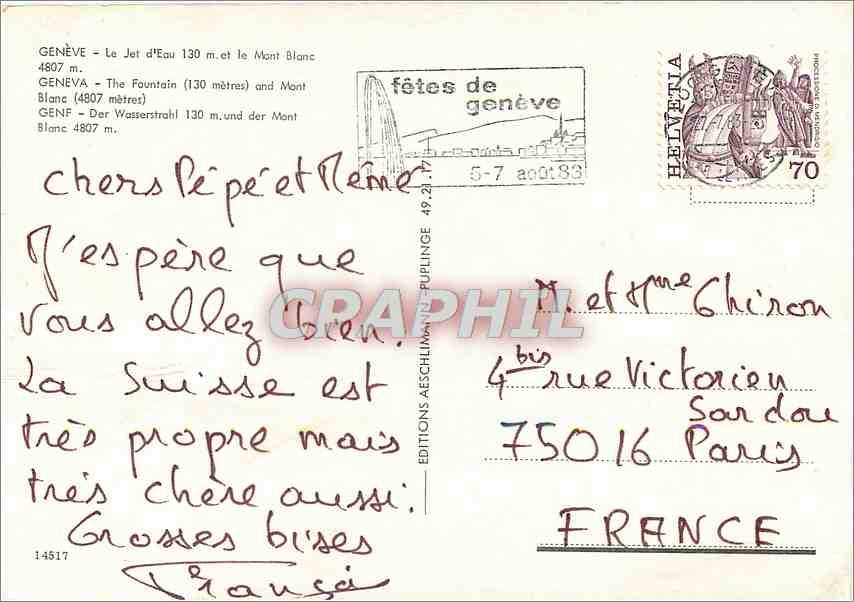 GENÈVE – Le Jet d'Eau 130 m. et le Mont Blanc
4807 m.
GENEVA – The Fountain (130 mètres) and Mont
Blanc (4807 mètres)
GENF – Der Wasserstrahl 130 m. und der Mont
Blanc 4807 m.
fêtes de
genève
5-7 août 83
HELVETIA
PROCESSIONE DI MENDRISIO
70
Chers Pépé et Mémé
J'espère que
vous allez bien.
La Suisse est
très propre mais
très chère aussi.
Grosses bises
14517
EDITIONS AESCHLIMANN - PUPLINGE 49.21.17
M. et Mme Ghiron
4 bis rue Victorien
Sardou
75016 Paris
FRANCE
CRAPHIL